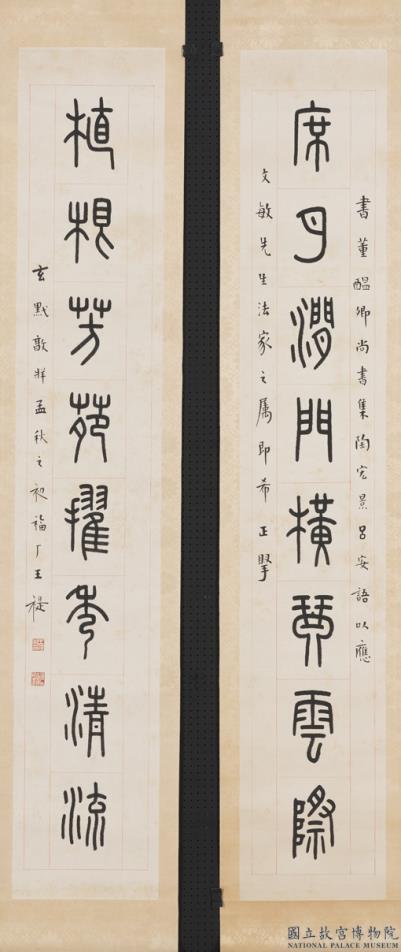 書董醞卿尚書集陶宏景呂安語以應
席月澗門橫琴雲際
文敏先生法家之屬即希正掔
植根芳苑擢秀清流
玄黓敦牂孟秋之初福厂王禔
國立故宮博物院
NATIONAL PALACE MUSEUM